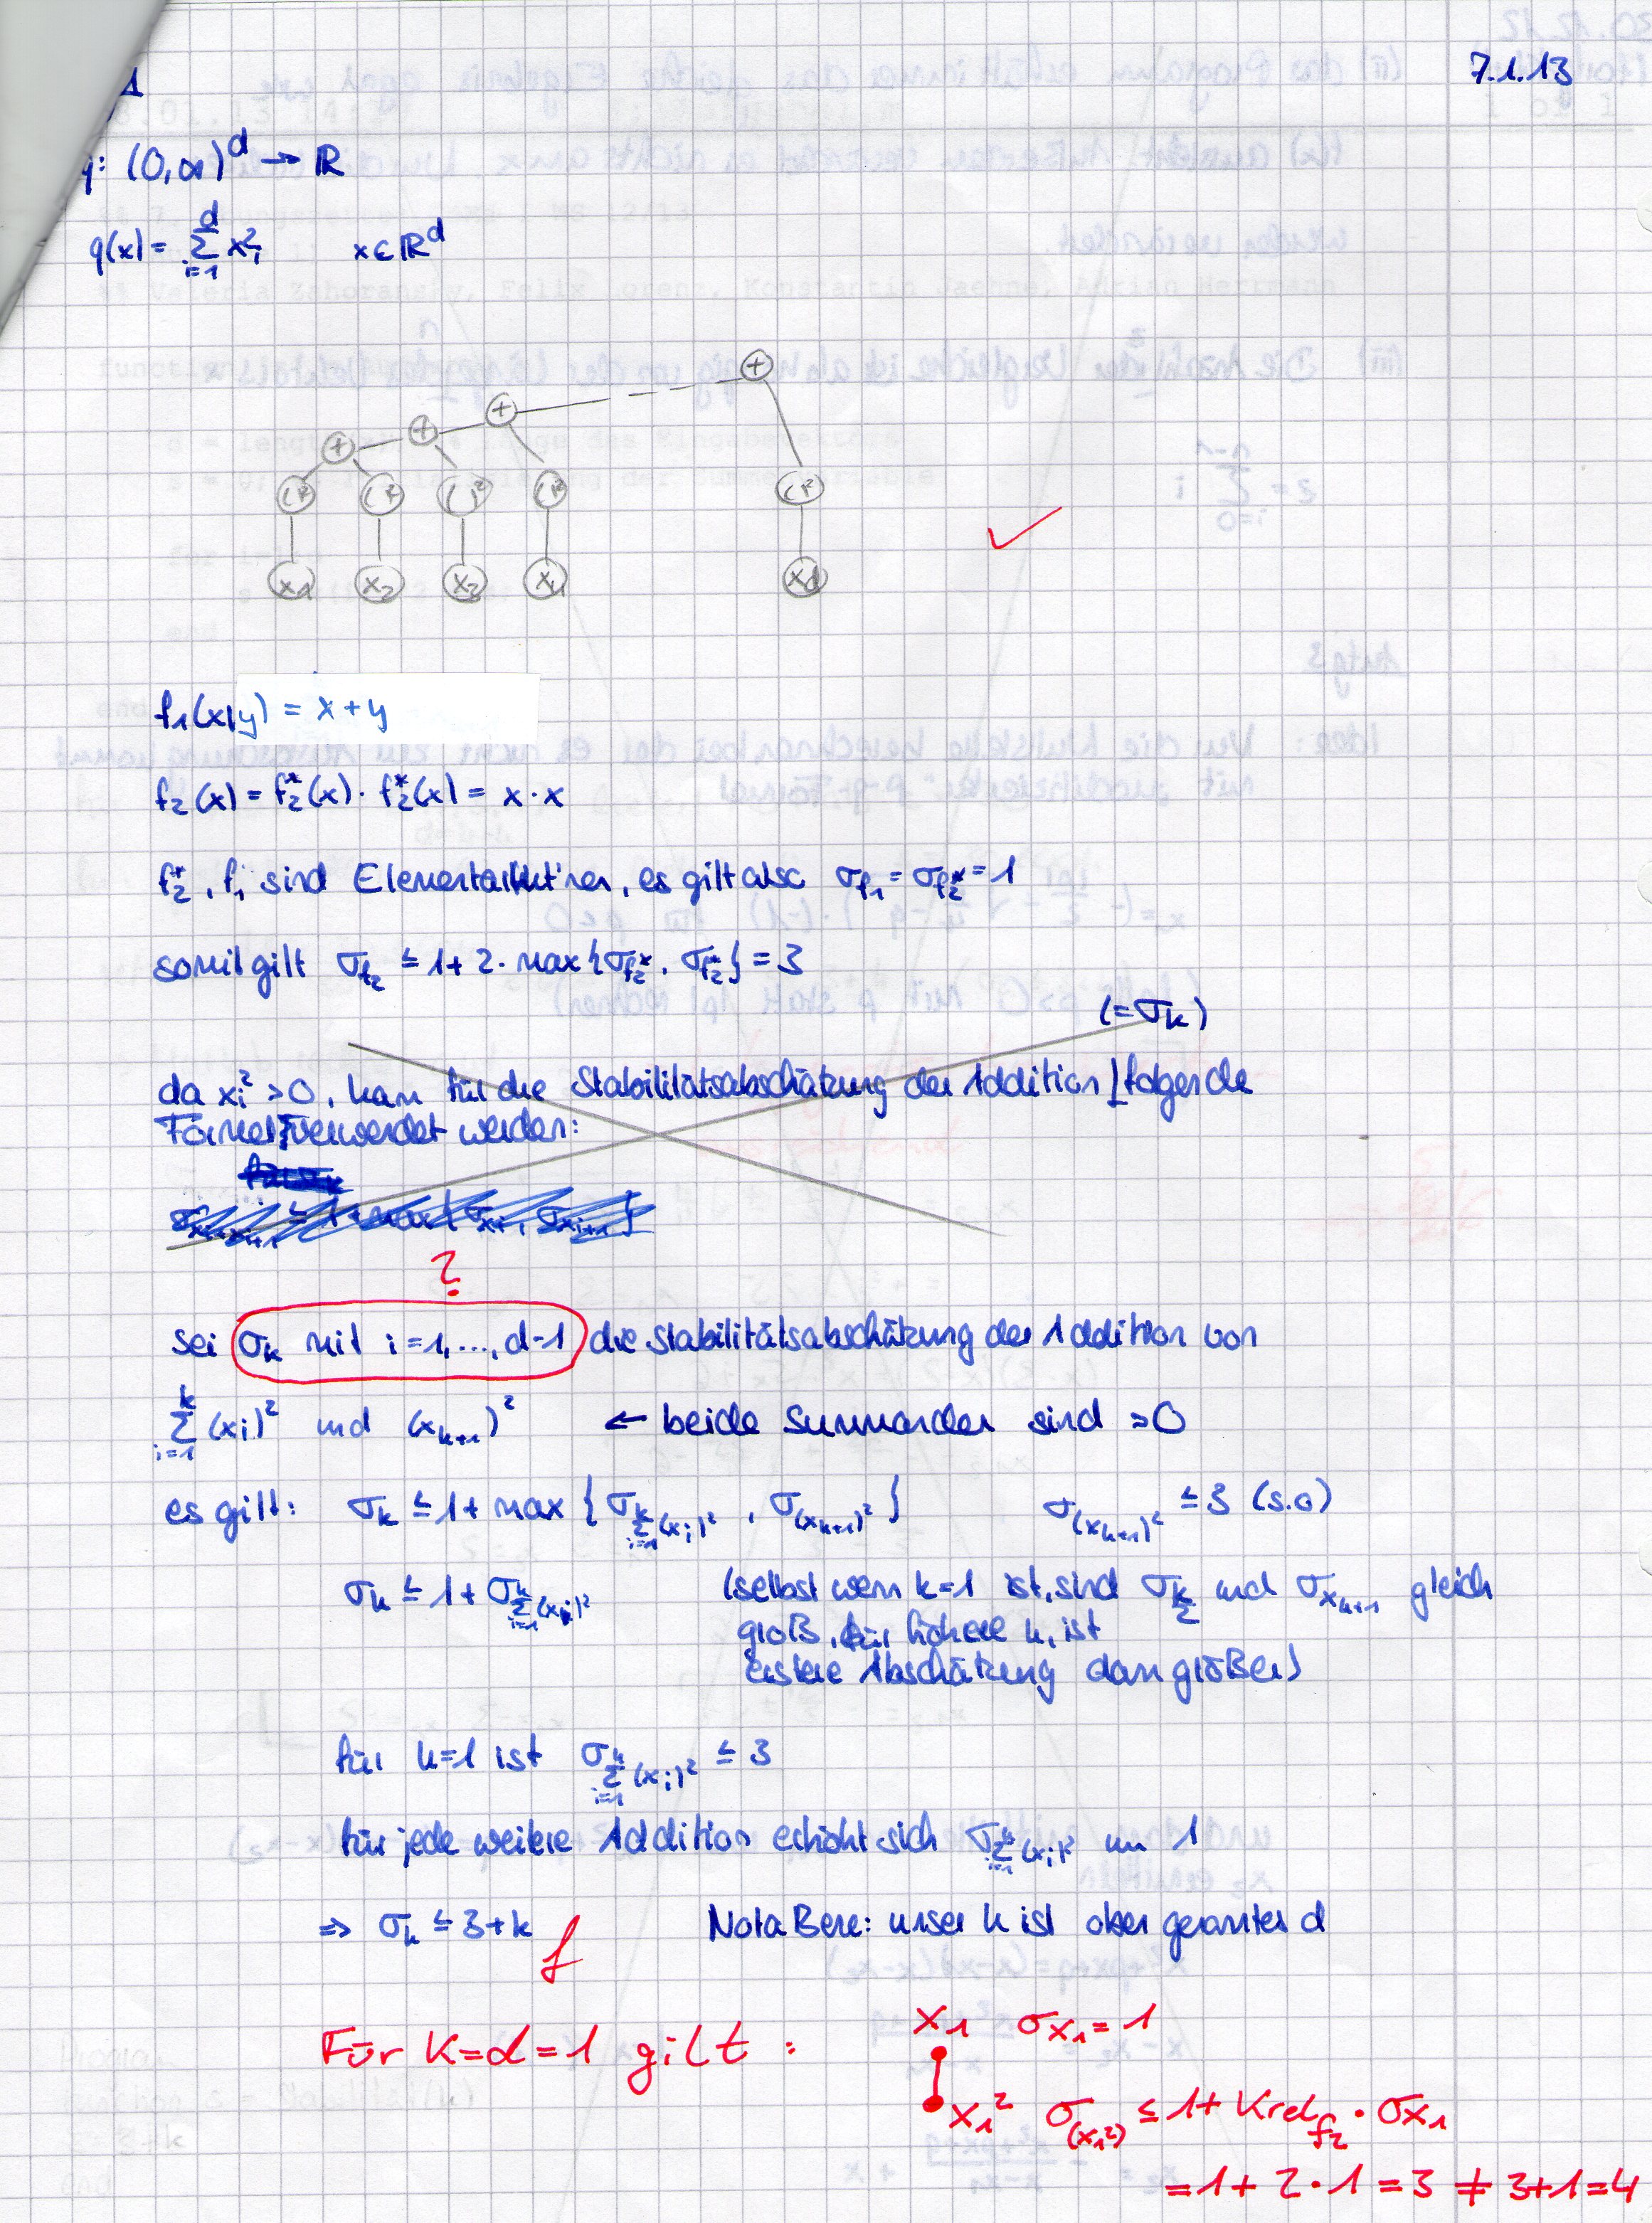 1
7.1.13
g: (0,∞)^d → ℝ
g(x) = Σ_{i=1}^{d} x_i² x ∈ ℝ^d
+
+
+
+
( )² ( )² ( )² ( )² ( )²
x1 x2 x3 x4 xd
f₁(x,y) = x + y
f₂(x) = f₂*(x) · f₂*(x) = x · x
f₂*, f₁ sind Elementarfkt'nen, es gilt also σ_{f₁} = σ_{f₂*} = 1
somit gilt σ_{f₂} ≤ 1 + 2 · max{σ_{f₂*}, σ_{f₂*}} = 3
(= σ_k)
da x_i² > 0, kann für die Stabilitätsabschätzung der Addition folgende
Formel verwendet werden:
σ_{x_i+x_{i+1}} ≤ 1 + max{σ_{x_i}, σ_{x_{i+1}}}
?
sei σ_k mit i = 1, ..., d-1 die Stabilitätsabschätzung der Addition von
Σ_{i=1}^{k} (x_i)² und (x_{k+1})² ← beide Summanden sind >0
es gilt: σ_k ≤ 1 + max {σ_{Σ_{i=1}^{k} (x_i)²}, σ_{(x_{k+1})²}} σ_{(x_{k+1})²} ≤ 3 (s.o)
σ_k ≤ 1 + σ_{Σ_{i=1}^{k} (x_i)²} (selbst wenn k=1 ist, sind σ_{Σ^k} und σ_{x_{k+1}} gleich
groß, für höhere k, ist
erstere Abschätzung dann größer)
für k=1 ist σ_{Σ_{i=1}^{k} (x_i)²} ≤ 3
für jede weitere Addition erhöht sich σ_{Σ_{i=1}^{k} (x_i)²} um 1
⇒ σ_k ≤ 3 + k f Nota Bene: unser k ist oben genanntes d
Für K=d=1 gilt :
x₁ σ_{x₁} = 1
x₁² σ_{(x₁²)} ≤ 1 + Krel_{f₂} · σ_{x₁}
= 1 + 2 · 1 = 3 ≠ 3+1 = 4